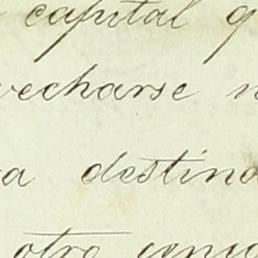 capital q
vecharse n
a destina
otro